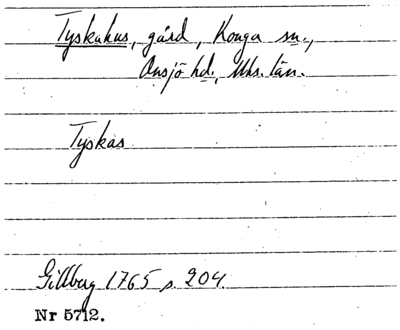 Tyskahus, gård, Konga sn.,
Onsjö hd., Mhs. län.
Tyskas
Gillberg 1765 s. 204.
Nr 5712.